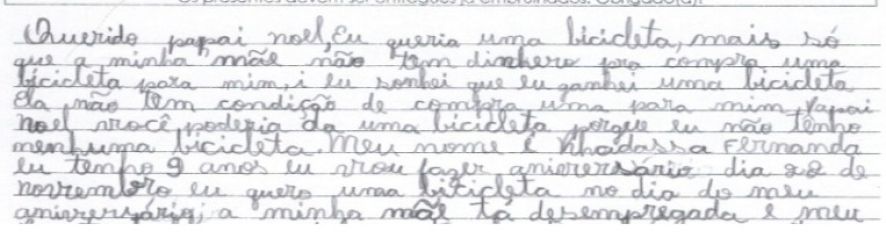 Os presentes devem ser entregues já embrulhados. Obrigado(a)!
Querido papai noel, Eu queria uma bicicleta, mais só
que a minha mãe não tem dinhero pra compra uma
bicicleta para mim, i eu sonhei que eu ganhei uma bicicleta
Ela não tem condição de compra uma para mim, Papai
noel você poderia da uma bicicleta porque eu não tenho
nenhuma bicicleta. Meu nome é Khadassa Fernanda
eu tenho 9 anos eu vou fazer aniversário dia 22 de
novembro eu quero uma bicicleta no dia do meu
aniversário, a minha mãe tá desempregada e meu